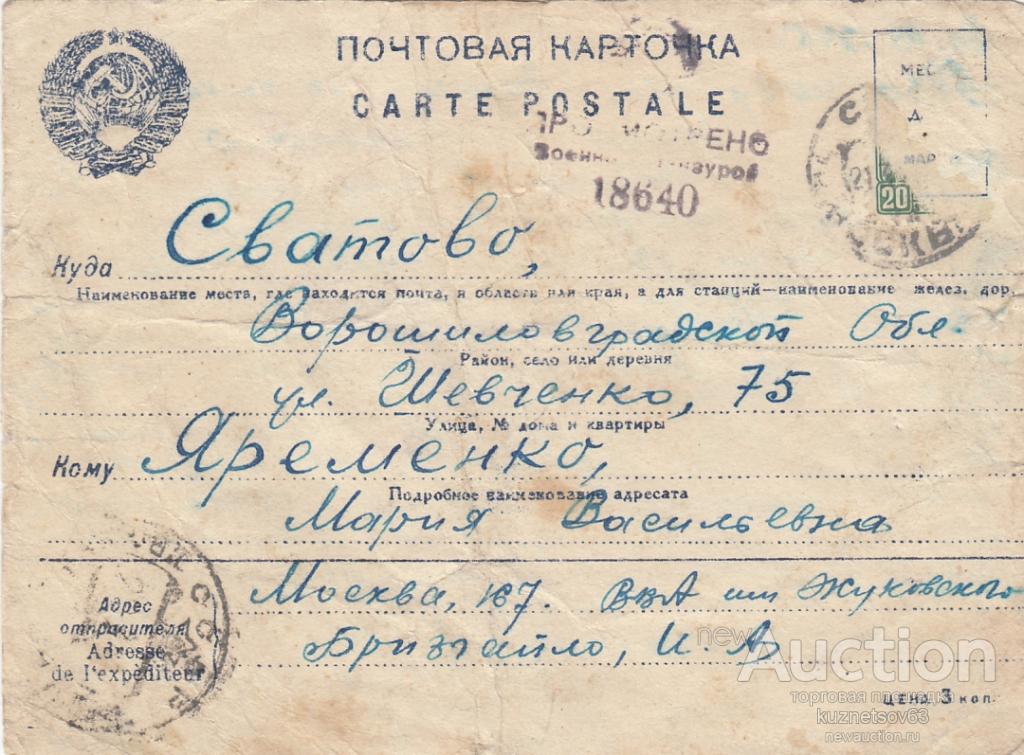 ПОЧТОВАЯ КАРТОЧКА
CARTE POSTALE
МЕС
Д
МАР
20
Военн нзурой
18640
Куда Сватово,
Наименование места, где находится почта, и области или края, а для станций—наименование желез. дор.
Ворошиловградской Обл.
Район, село или деревня
ул. Шевченко, 75
Улица, № дома и квартиры
Кому Яременко,
Подробное наименование адресата
Мария Васильевна
Адрес
отправителя
Adresse
de l'expéditeur
Москва, 167. ВВА им Жуковского
Бризгайло, И. А
ЦЕНА 3 коп.
newAuction
торговая площадка
kuznetsov63
newauction.ru